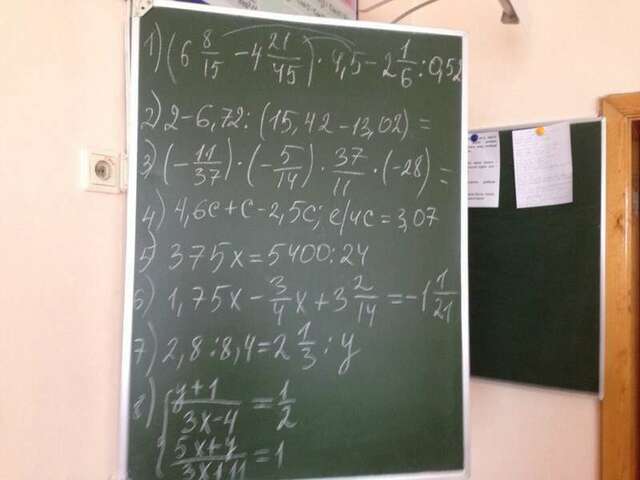 1) (6 8/15 - 4 21/45) · 4,5 - 2 1/6 : 0,52
2) 2 - 6,72 : (15,42 - 13,02) =
3) (- 11/37) · (- 5/14) · 37/11 · (-28) =
4) 4,6c + c - 2,5c; е/ч c = 3,07
5) 375x = 5400 : 24
6) 1,75x - 3/4 x + 3 2/14 = -1 1/21
7) 2,8 : 8,4 = 2 1/3 : y
8) { y+1 / 3x-4 = 1/2
5x+y / 3x+11 = 1